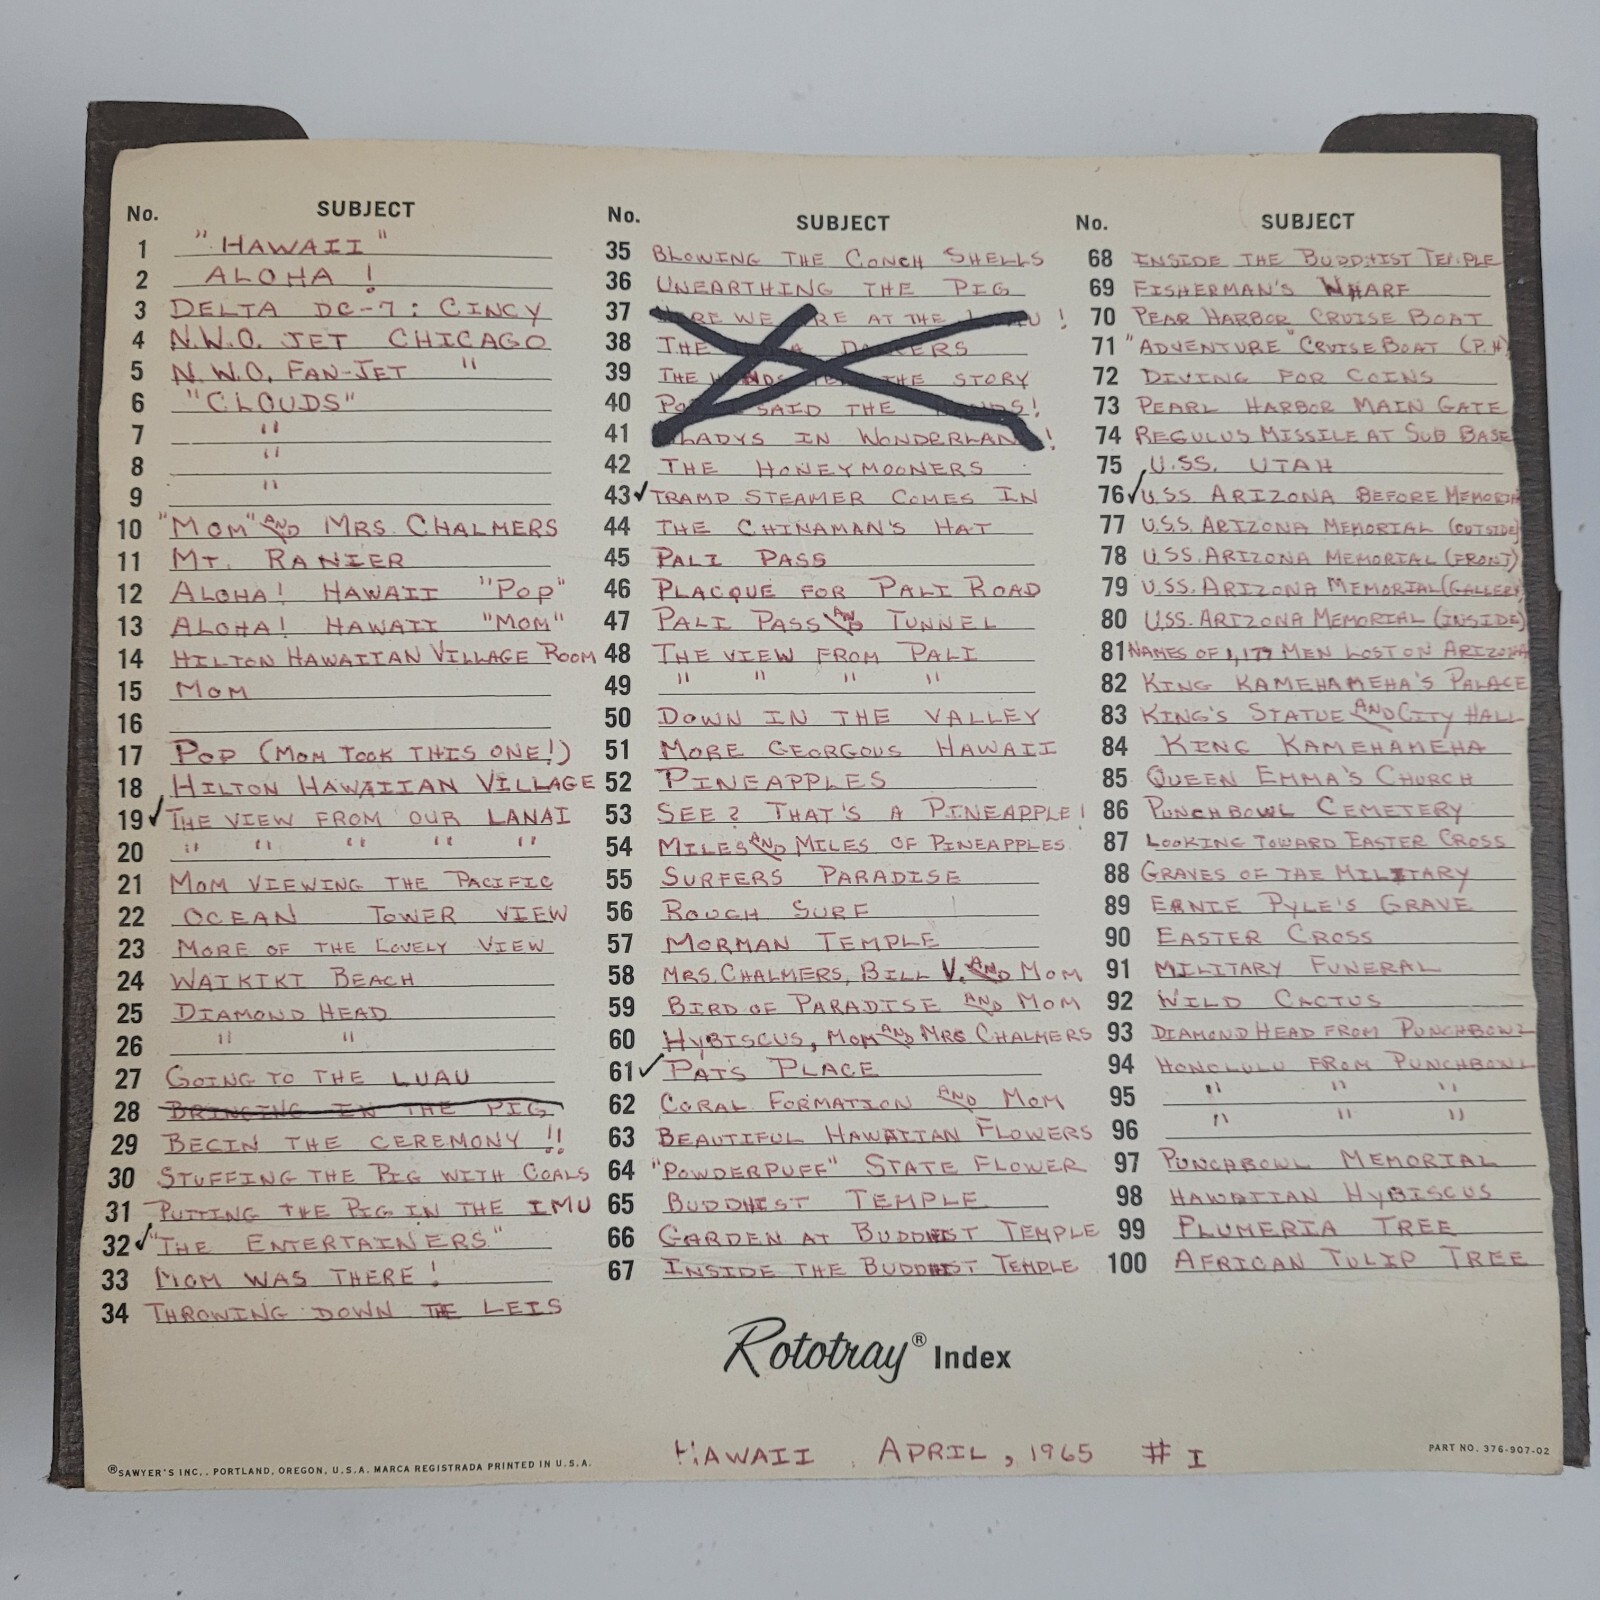 No. SUBJECT
1 "HAWAII"
2 ALOHA!
3 DELTA DC-7: CINCY
4 N.W.O. JET CHICAGO
5 N.W.O. FAN-JET "
6 "CLOUDS"
7 "
8 "
9 "
10 "MOM" AND MRS. CHALMERS
11 MT. RANIER
12 ALOHA! HAWAII "POP"
13 ALOHA! HAWAII "MOM"
14 HILTON HAWAIIAN VILLAGE ROOM
15 MOM
16
17 POP (MOM TOOK THIS ONE!)
18 HILTON HAWAIIAN VILLAGE
19 ✓ THE VIEW FROM OUR LANAI
20 " " " " "
21 MOM VIEWING THE PACIFIC
22 OCEAN TOWER VIEW
23 MORE OF THE LOVELY VIEW
24 WAIKIKI BEACH
25 DIAMOND HEAD
26 " "
27 GOING TO THE LUAU
28 BRINGING IN THE PIG
29 BEGIN THE CEREMONY!!
30 STUFFING THE PIG WITH COALS
31 PUTTING THE PIG IN THE IMU
32 ✓ "THE ENTERTAINERS"
33 MOM WAS THERE!
34 THROWING DOWN THE LEIS
No. SUBJECT
35 BLOWING THE CONCH SHELLS
36 UNEARTHING THE PIG
37 WE AT THE !
38 THE
39 THE THE STORY
40 SAID THE !
41 GLADYS IN WONDERLAND!
42 THE HONEYMOONERS
43 ✓ TRAMP STEAMER COMES IN
44 THE CHINAMAN'S HAT
45 PALI PASS
46 PLACQUE FOR PALI ROAD
47 PALI PASS AND TUNNEL
48 THE VIEW FROM PALI
49 " " " "
50 DOWN IN THE VALLEY
51 MORE GEORGOUS HAWAII
52 PINEAPPLES
53 SEE? THAT'S A PINEAPPLE!
54 MILES AND MILES OF PINEAPPLES
55 SURFERS PARADISE
56 ROUGH SURF
57 MORMAN TEMPLE
58 MRS. CHALMERS, BILL V. AND MOM
59 BIRD OF PARADISE AND MOM
60 HYBISCUS, MOM AND MRS CHALMERS
61 ✓ PATS PLACE
62 CORAL FORMATION AND MOM
63 BEAUTIFUL HAWAIIAN FLOWERS
64 "POWDERPUFF" STATE FLOWER
65 BUDDHIST TEMPLE
66 GARDEN AT BUDDHIST TEMPLE
67 INSIDE THE BUDDHIST TEMPLE
No. SUBJECT
68 INSIDE THE BUDDHIST TEMPLE
69 FISHERMAN'S WHARF
70 PEAR HARBOR CRUISE BOAT
71 "ADVENTURE" CRUISE BOAT (P.H)
72 DIVING FOR COINS
73 PEARL HARBOR MAIN GATE
74 REGULUS MISSILE AT SUB BASE
75 U.SS. UTAH
76 ✓ U.SS. ARIZONA BEFORE
77 U.S.S. ARIZONA MEMORIAL (OUTSIDE)
78 U.S.S. ARIZONA MEMORIAL (FRONT)
79 U.S.S. ARIZONA MEMORIAL (GALLERY)
80 USS. ARIZONA MEMORIAL (INSIDE)
81 NAMES OF 1,177 MEN LOST ON ARIZONA
82 KING KAMEHAMEHA'S PALACE
83 KING'S STATUE AND CITY HALL
84 KING KAMEHAMEHA
85 QUEEN EMMA'S CHURCH
86 PUNCHBOWL CEMETERY
87 LOOKING TOWARD EASTER CROSS
88 GRAVES OF THE MILITARY
89 ERNIE PYLE'S GRAVE
90 EASTER CROSS
91 MILITARY FUNERAL
92 WILD CACTUS
93 DIAMOND HEAD FROM PUNCHBOWL
94 HONOLULU FROM PUNCHBOWL
95 " " "
96 " " "
97 PUNCHBOWL MEMORIAL
98 HAWAIIAN HYBISCUS
99 PLUMERIA TREE
100 AFRICAN TULIP TREE
Rototray® Index
HAWAII APRIL, 1965 # I
®SAWYER'S INC., PORTLAND, OREGON, U.S.A. MARCA REGISTRADA PRINTED IN U.S.A.
PART NO. 376-907-02